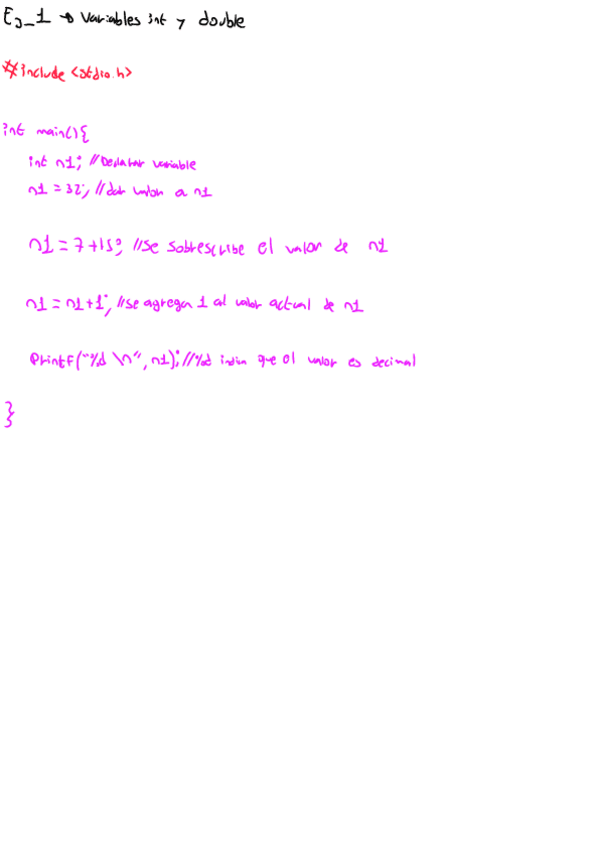 Ej_1 → Variables int y double
#include <stdio.h>
int main(){
int n1; //Declarar variable
n1 = 32; //dar valor a n1
n1 = 7+15; //se sobrescribe el valor de n1
n1 = n1+1; //se agrega 1 al valor actual de n1
printf("%d \n", n1); //%d indica que el valor es decimal
}